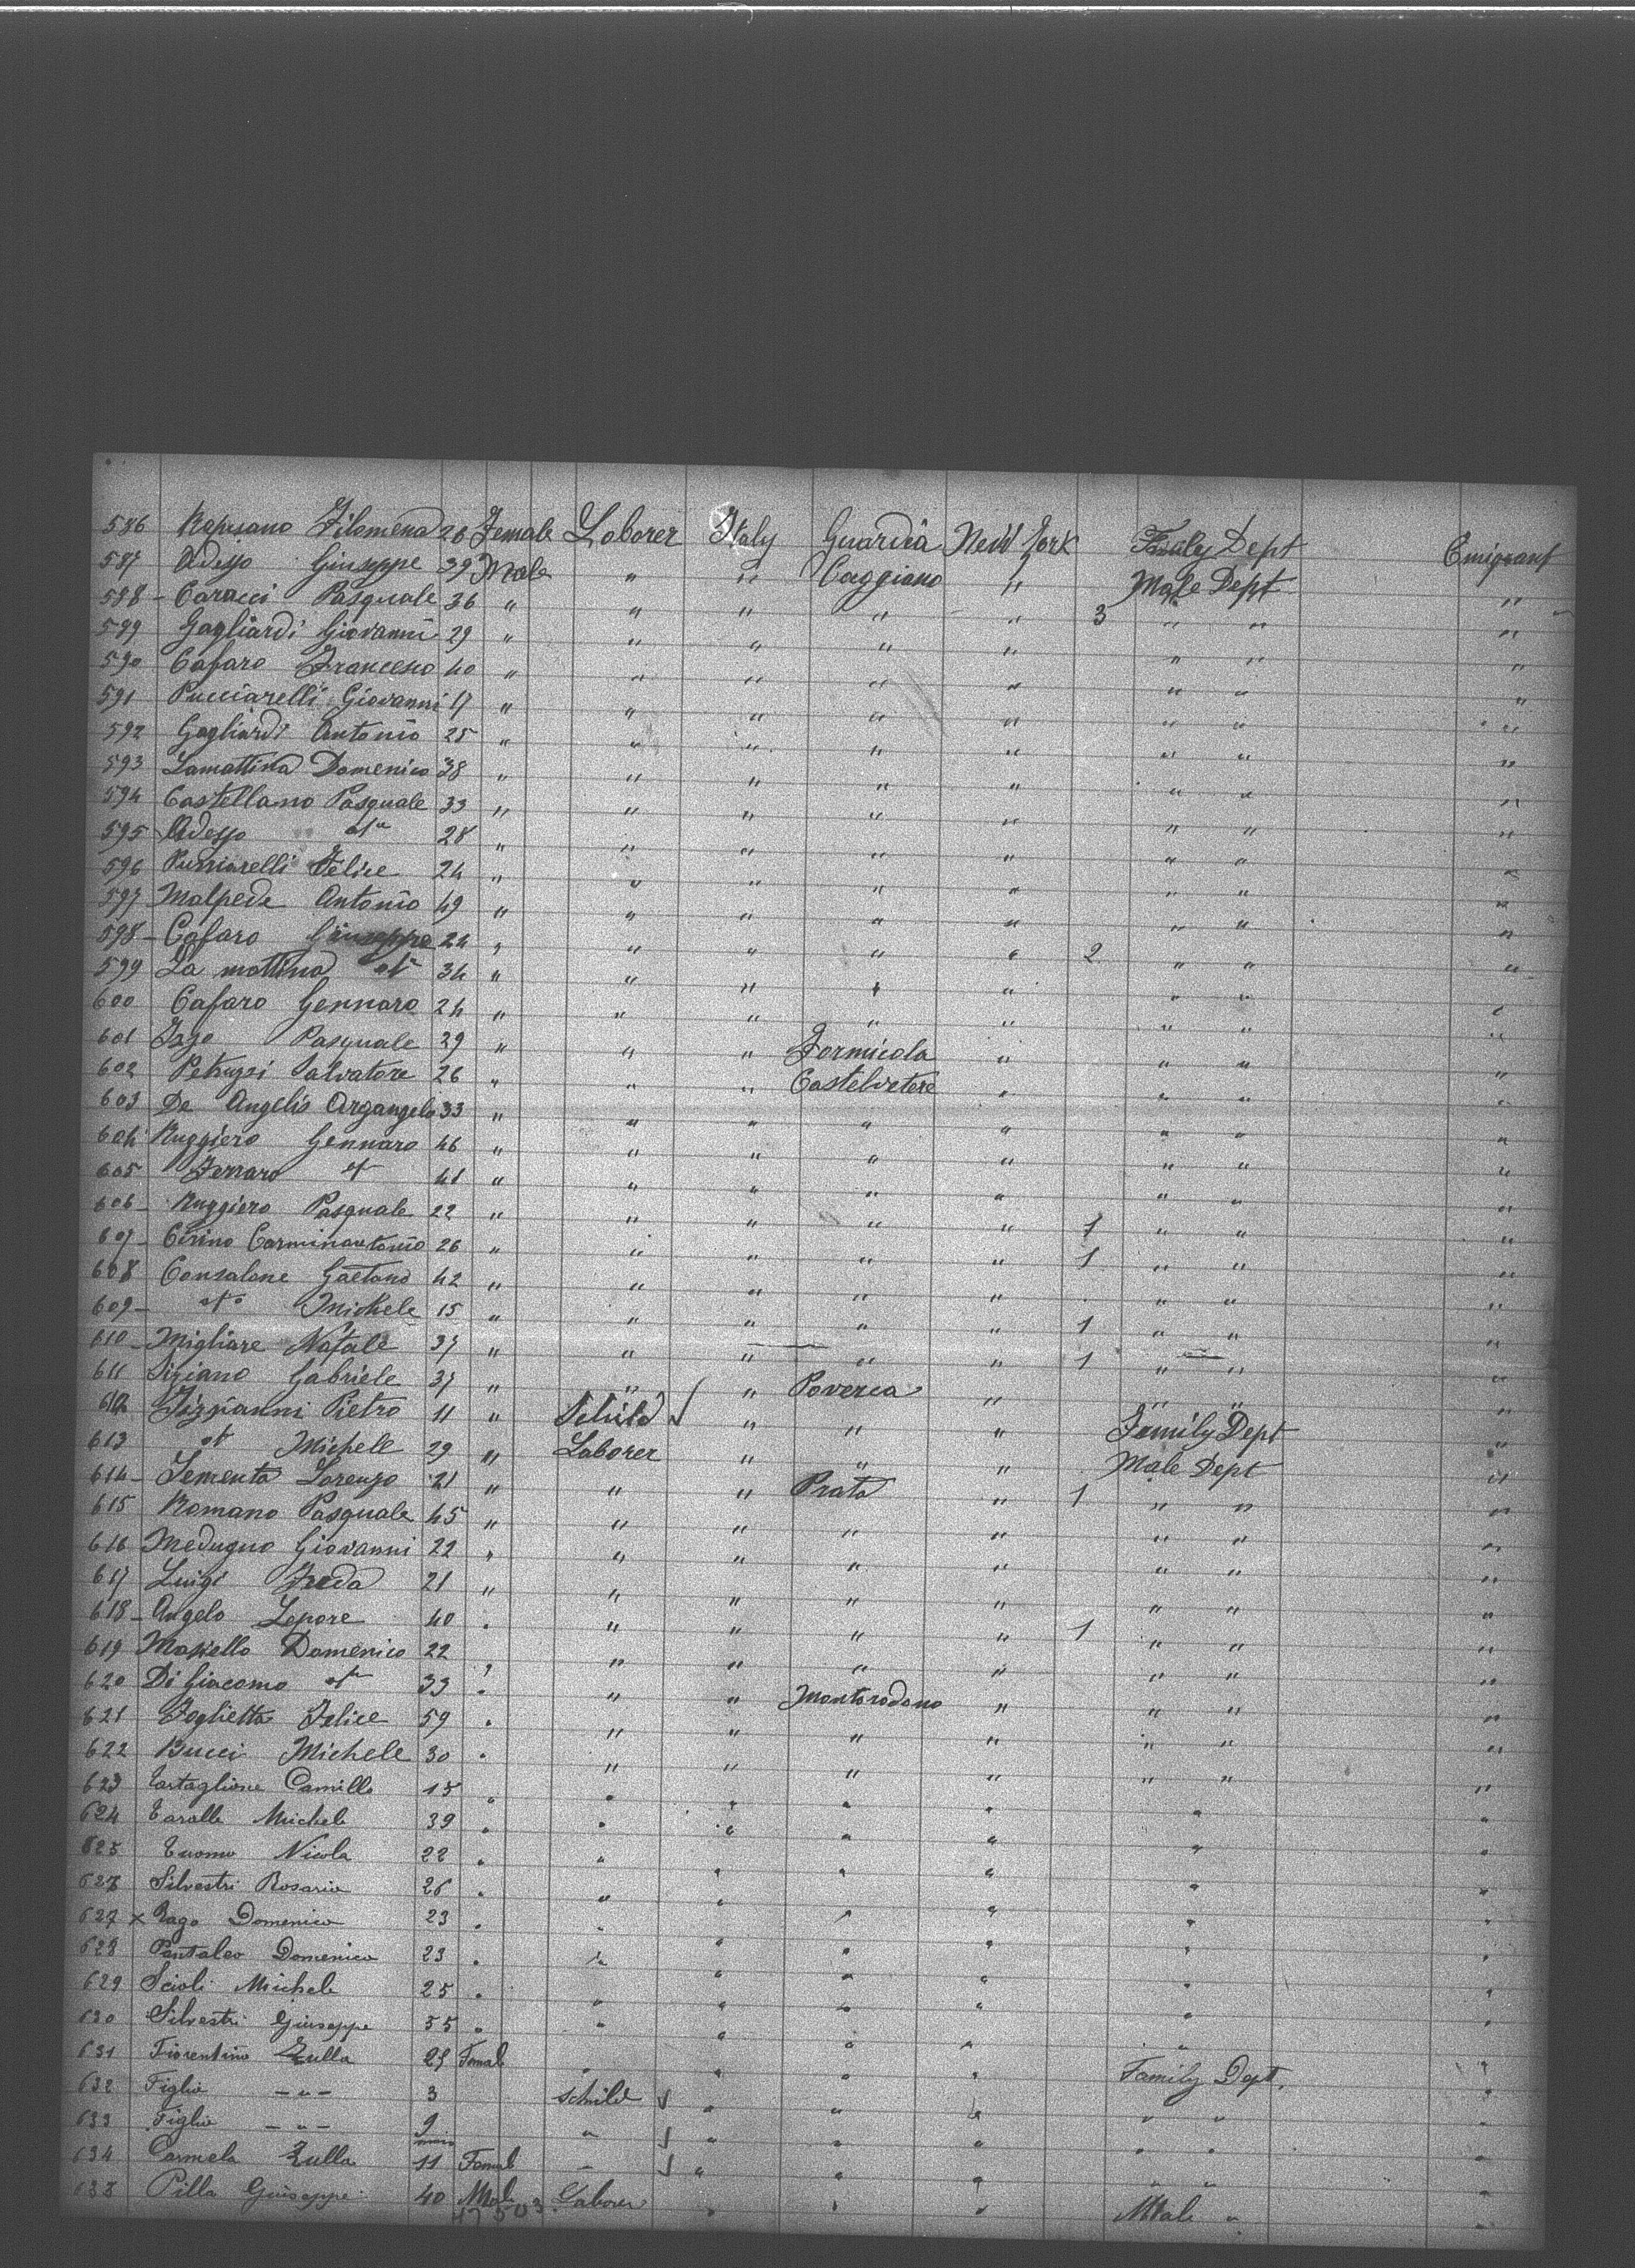 586 Rapesano Filomena 28 Female Laborer Italy Guardia New York Family Dept Emigrant
587 Adesso Giuseppe 39 Male " " Caggiano " Male Dept "
588 - Caracci Pasquale 36 " " " " " 3 " " "
589 Gagliardi Giovanni 29 " " " " " " " "
590 Cafaro Francesco 40 " " " " " " " "
591 Pucciarelli Giovanni 17 " " " " " " " "
592 Gagliardi Antonio 25 " " " " " " " "
593 Lamattina Domenico 38 " " " " " " " "
594 Castellano Pasquale 33 " " " " " " " "
595 Adesso dto 28 " " " " " " " "
596 Pucciarelli Felice 24 " " " " " " " "
597 Malpede Antonio 49 " " " " " " " "
598 - Cafaro Giuseppe 24 " " " " " 2 " " "
599 La mattina dto 34 " " " " " " " "
600 Cafaro Gennaro 24 " " " " " " " "
601 Izzo Pasquale 29 " " " Formicola " " " "
602 Petruzzi Salvatore 26 " " " Castelvetere " " " "
603 De Angelis Argangelo 33 " " " " " " " "
604 Ruggiero Gennaro 46 " " " " " " " "
605 Ferraro dto 41 " " " " " " " "
606 - Ruggiero Pasquale 22 " " " " " 1 " " "
607 - Cirino Carminantonio 26 " " " " " 1 " " "
608 Consalone Gaetano 42 " " " " " " " "
609 - dto Michele 15 " " " " " 1 " " "
610 - Migliare Natale 37 " " " " " 1 " " "
611 Siziano Gabriele 37 " " " Poverea " " " "
612 Fizzianni Pietro 11 " Schild √ " " " Family Dept "
613 dto Michele 29 " Laborer " " " Male Dept "
614 - Sementa Lorenzo 21 " " " Prata " 1 " " "
615 Romano Pasquale 45 " " " " " " " "
616 Medugno Giovanni 22 " " " " " " " "
617 Luigi Freda 21 " " " " " " " "
618 - Angelo Lepore 40 " " " " " 1 " " "
619 Masiello Domenico 22 " " " " " " " "
620 Di Giacomo dto 33 " " " Montorodono " " " "
621 Foglietta Felice 59 " " " " " " " "
622 Bucci Michele 30 " " " " " " " "
623 Tartaglione Camillo 15 " " " " " " "
624 Tarolle Michele 39 " " " " " " "
625 Tuomo Nicola 22 " " " " " " "
626 Silvestri Rosario 26 " " " " " " "
627 x Rago Domenico 23 " " " " " " "
628 Pantaleo Domenico 23 " " " " " " "
629 Scioli Michele 25 " " " " " " "
630 Silvestri Giuseppe 35 " " " " " " "
631 Fiorentino Zulla 25 Femal " " " " Family Dept. "
632 Figlio - " - 3 Schild √ " " " " " "
633 Figlio - " - 9 " √ " " " " " "
634 Carmela Zulla 11 Femal " √ " " " " " "
635 Pilla Giuseppe 40 Male Laborer " " " Male " "